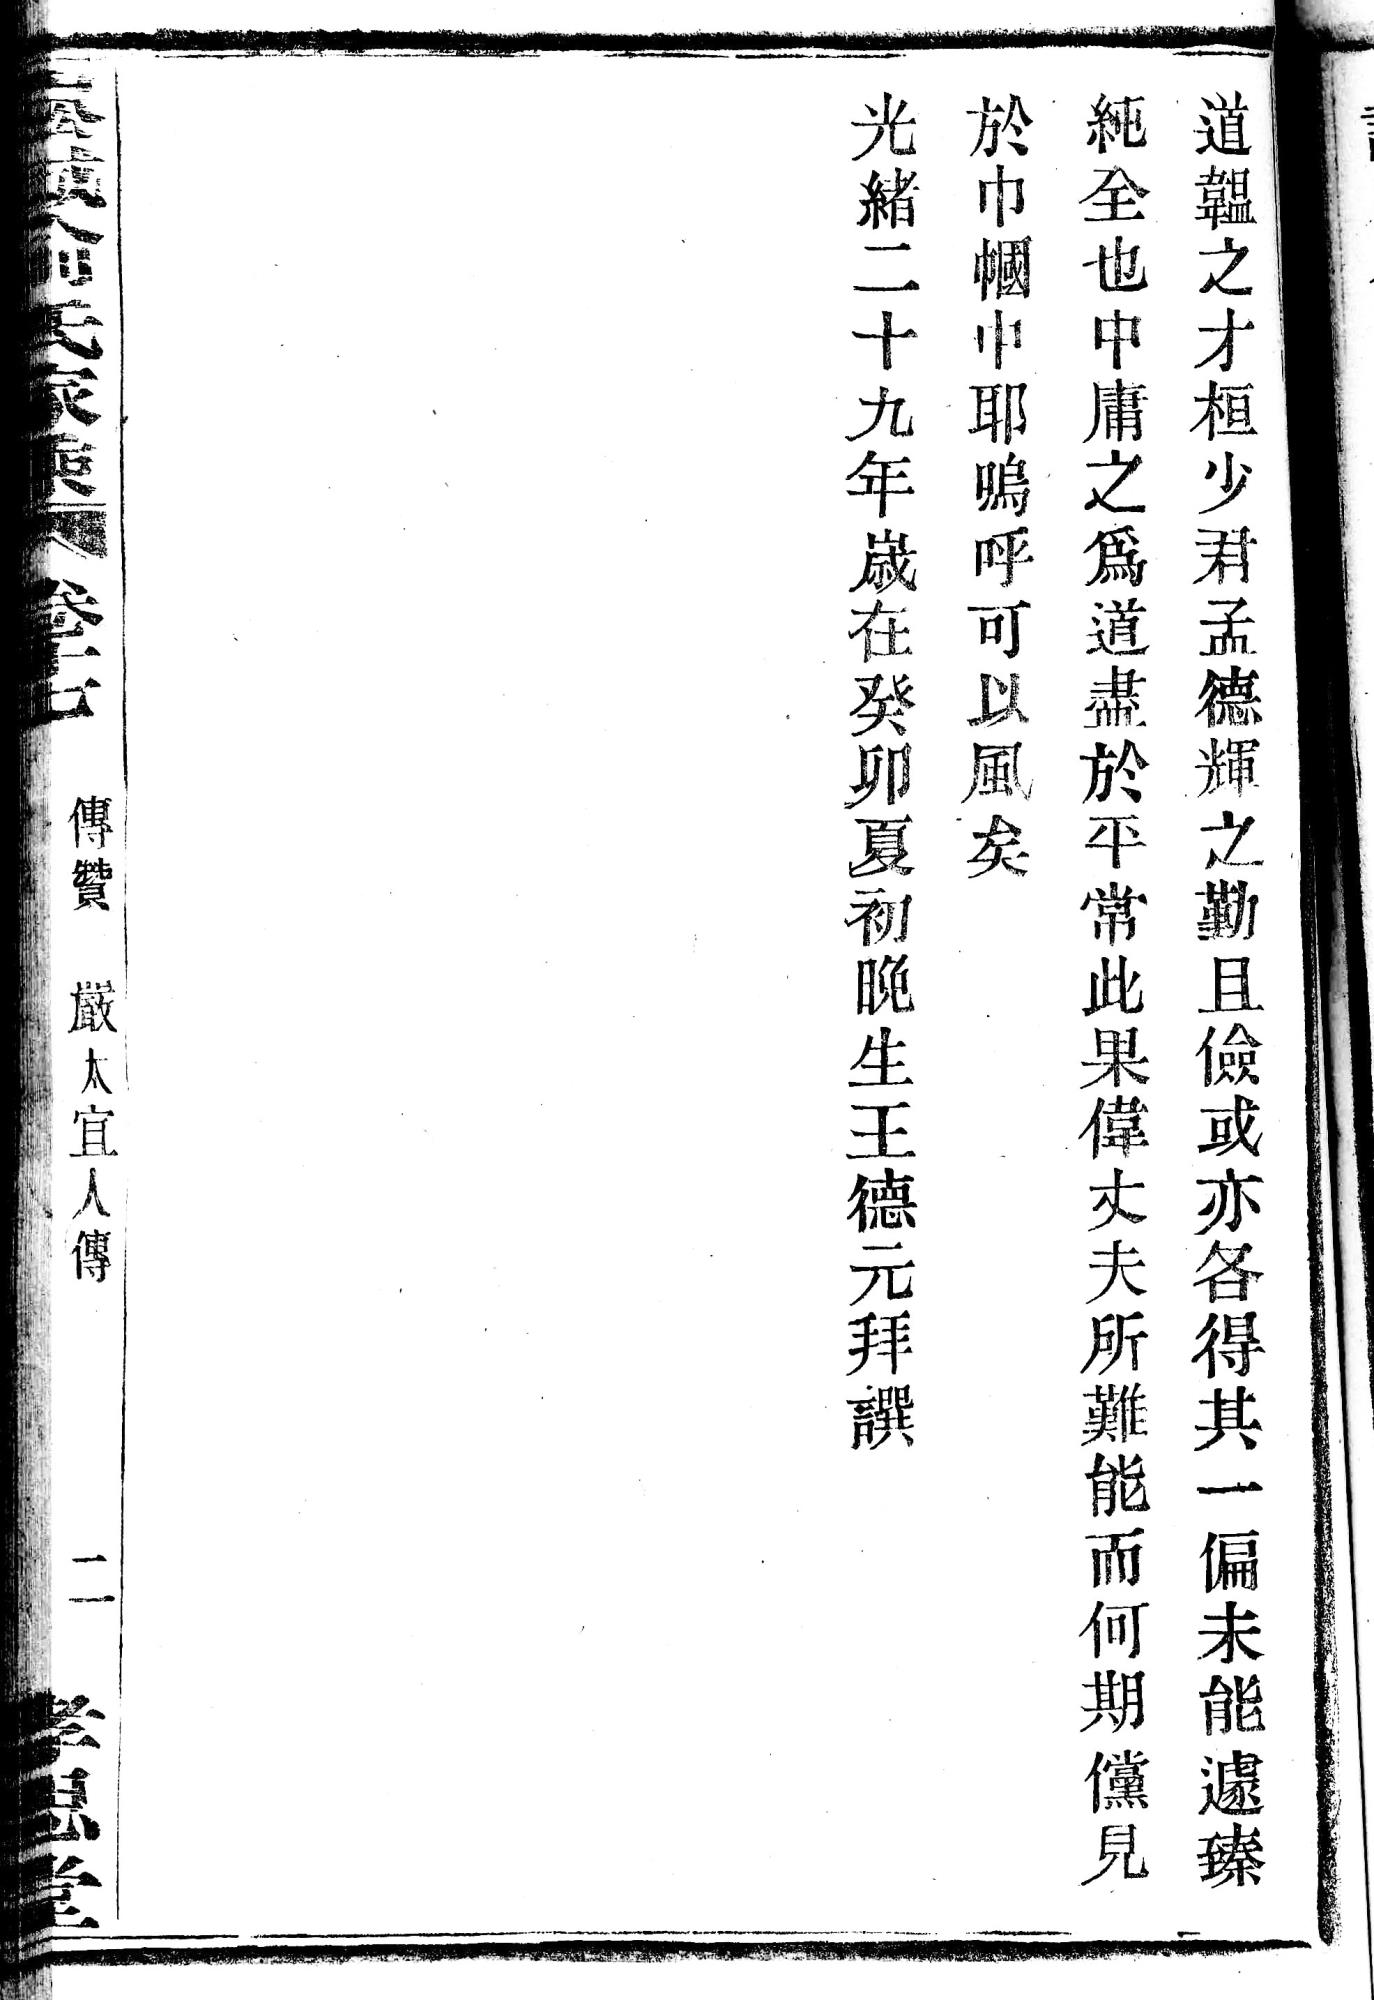 道韞之才桓少君孟德輝之勤且儉或亦各得其一偏未能遽臻
純全也中庸之爲道盡於平常此果偉丈夫所難能而何期儻見
於巾幗中耶嗚呼可以風矣
光緒二十九年歲在癸卯夏初晚生王德元拜譔
氏家乘 卷十七 傳贊 嚴太宜人傳 二 孝思堂